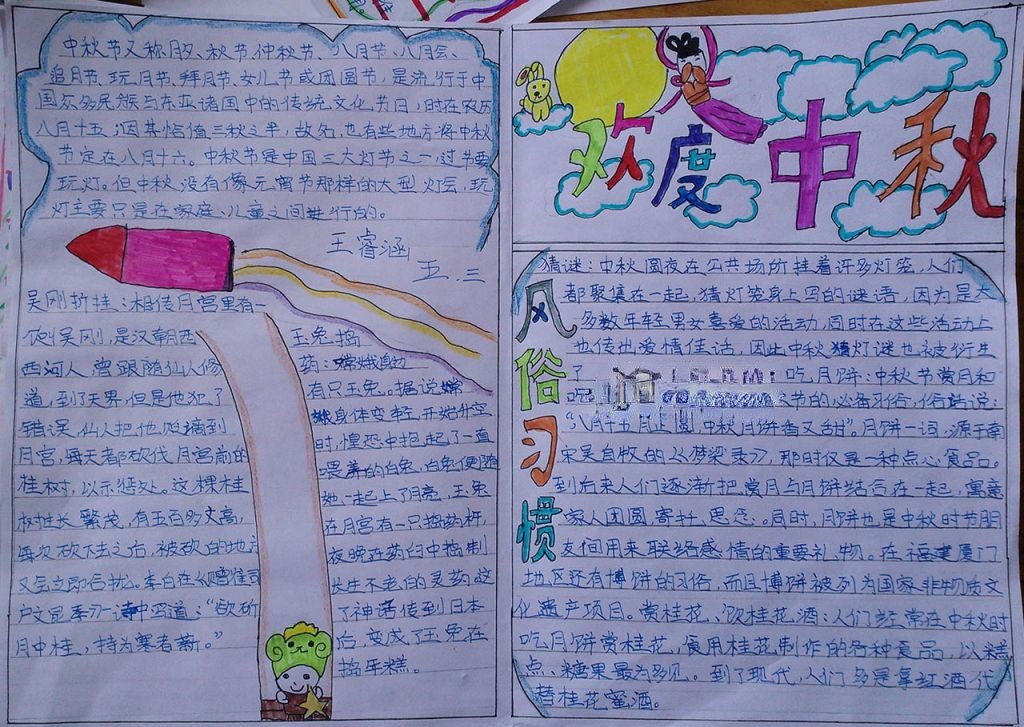 中秋节又称月夕、秋节、仲秋节、八月节、八月会、
追月节、玩月节、拜月节、女儿节或团圆节，是流行于中
国众多民族与东亚诸国中的传统文化节日，时在农历
八月十五；因其恰值三秋之半，故名，也有些地方将中秋
节定在八月十六。中秋节是中国三大灯节之一，过节要
玩灯。但中秋没有像元宵节那样的大型灯会，玩
灯主要只是在家庭、儿童之间进行的。
王睿涵
五.三
吴刚折桂：相传月宫里有一
个叫吴刚，是汉朝西
西河人，曾跟随仙人修
道，到了天界，但是他犯了
错误，仙人把他贬谪到
月宫，每天都砍伐月宫前的
桂树，以示惩处。这棵桂
树生长繁茂，有五百多丈高，
每次砍下去之后，被砍的地方
又会立即合拢。李白在《赠崔司
户文昆季》一诗中写道：“欲斫
月中桂，持为寒者薪。”
玉兔捣
药：嫦娥身边
有只玉兔。据说嫦
娥身体变轻，开始升空
时，惶恐中抱起了一直
喂养的白兔，白兔便随
她一起上了月亮，玉兔
在月宫有一只捣药杵，
夜晚在药臼中捣制
长生不老的灵药。这
了神话传到日本
后，变成了玉兔在
捣年糕。
欢度中秋
风俗习惯
猜谜：中秋圆夜在公共场所挂着许多灯笼，人们
都聚集在一起，猜灯笼身上写的谜语，因为是大
多数年轻男女喜爱的活动，同时在这些活动上
也传出爱情佳话，因此中秋猜灯谜也被衍生
了 吃月饼：中秋节赏月和
吃 节的必备习俗，俗话说：
“八月十五月正圆，中秋月饼香又甜”。月饼一词，源于南
宋吴自牧的《梦梁录》，那时仅是一种点心食品。
到后来人们逐渐把赏月与月饼结合在一起，寓意
家人团圆，寄托思念。同时，月饼也是中秋时节朋
友间用来联络感情的重要礼物。在福建厦门
地区还有博饼的习俗，而且博饼被列为国家非物质文
化遗产项目。赏桂花、饮桂花酒：人们经常在中秋时
吃月饼赏桂花，食用桂花制作的各种食品，以糕
点、糖果最为多见。到了现代，人们多是拿红酒代
替桂花蜜酒。